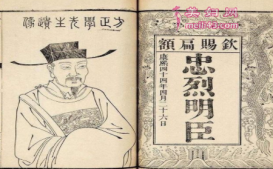 方正學先生遺像
欽賜扁額
忠烈明臣
康熙四十四年四月二十六日